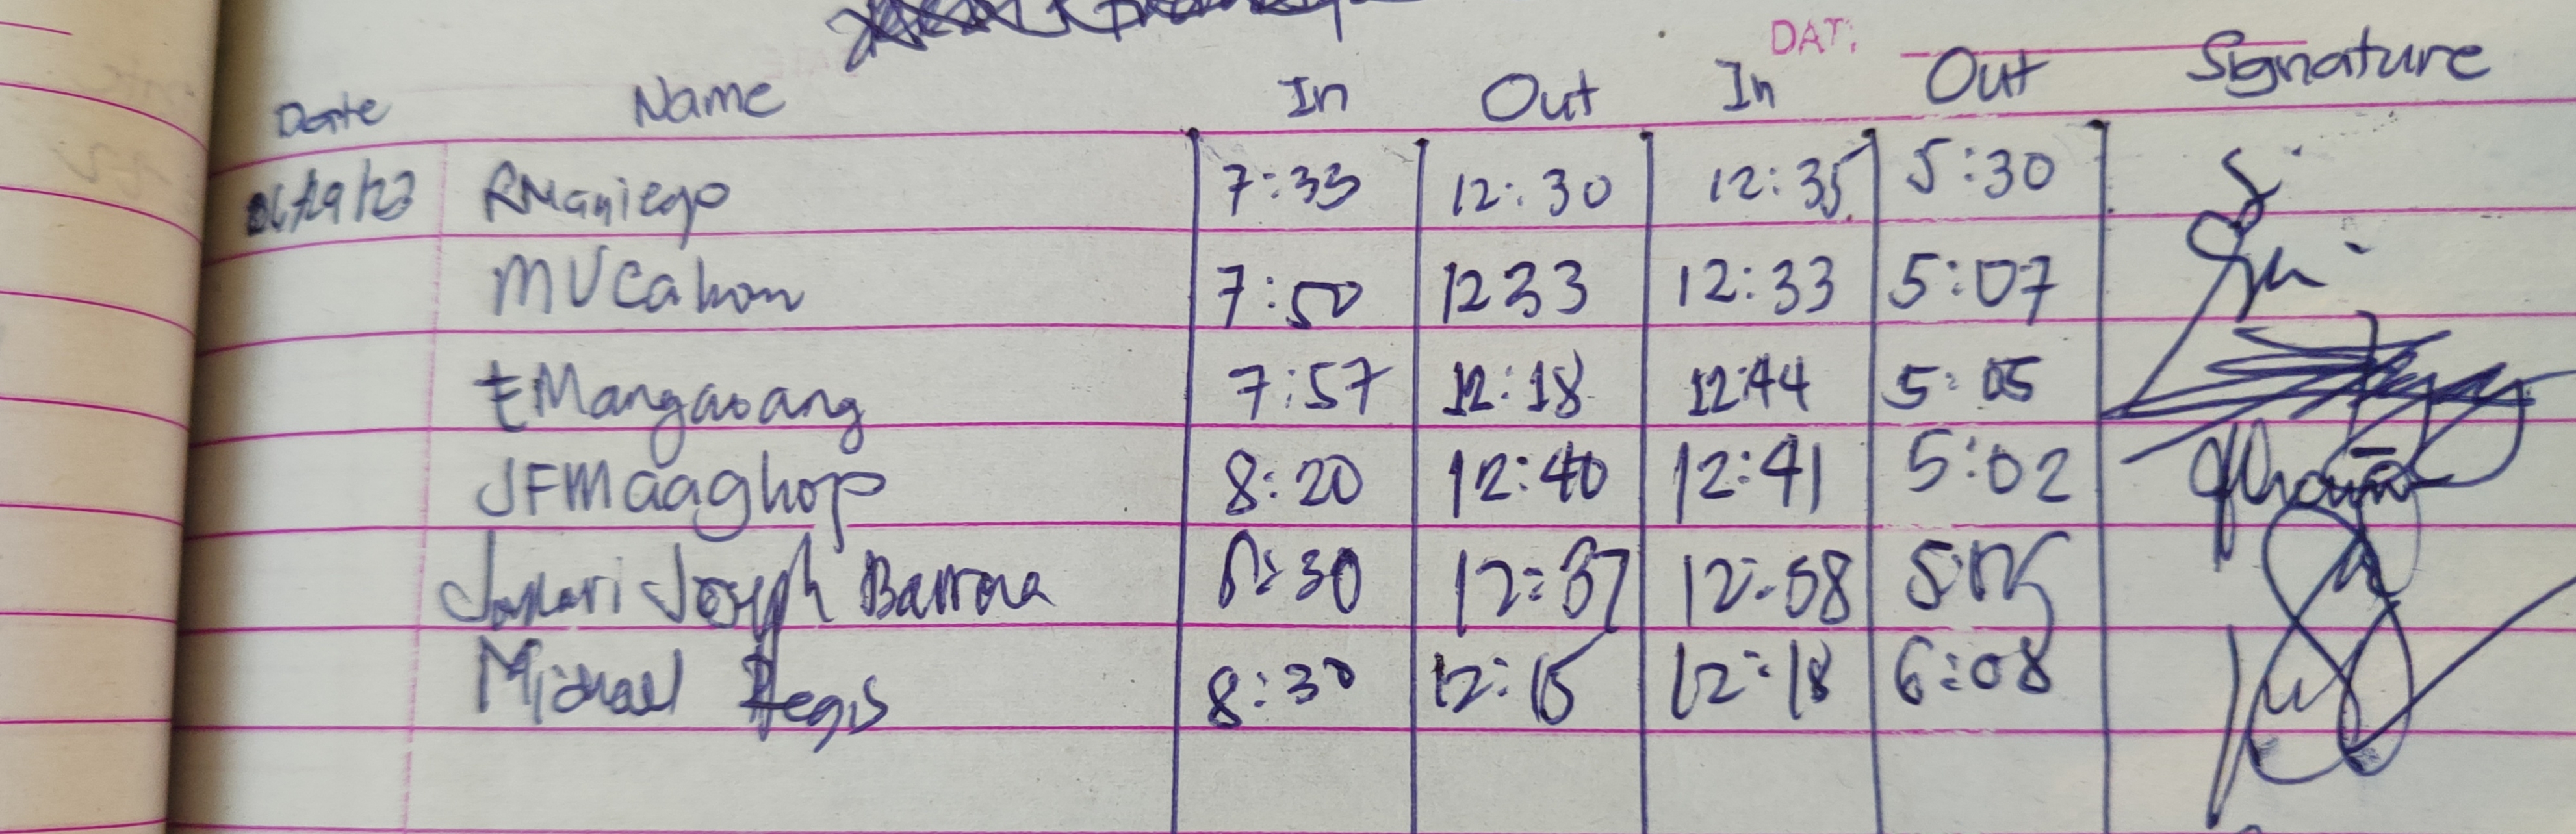 DATE
Date Name In Out In Out Signature
RManiego 7:33 12:30 12:35 5:30
MVCahon 7:50 1233 12:33 5:07
EMangaoang 7:57 12:18 12:44 5:05
JFMaaghop 8:20 12:40 12:41 5:02
Joseph Barrona 8:30 12:37 12:58 5:05
Michael Regis 8:30 12:15 12:18 6:08